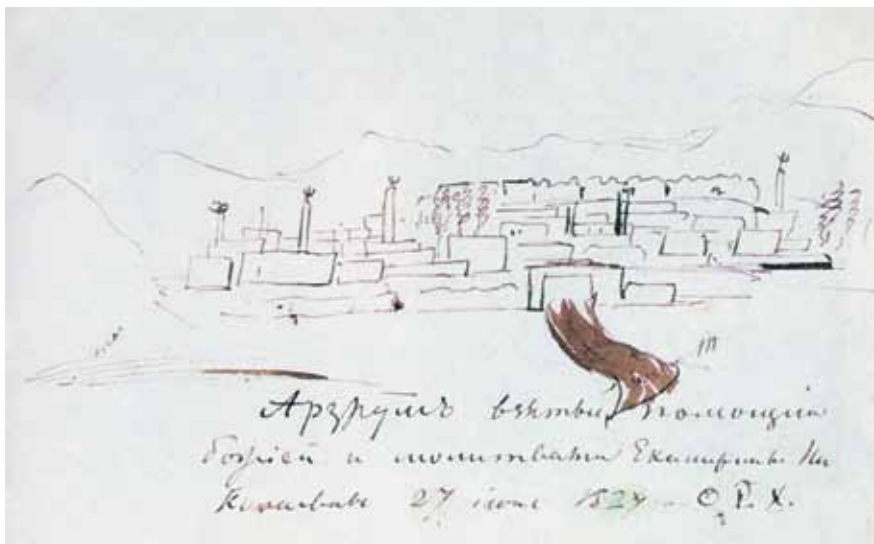 Арзрумъ взятый помощiю
Божiей и молитвами Екатерины Ни
колаевны 27 июня 1829 – О. Р. Х.